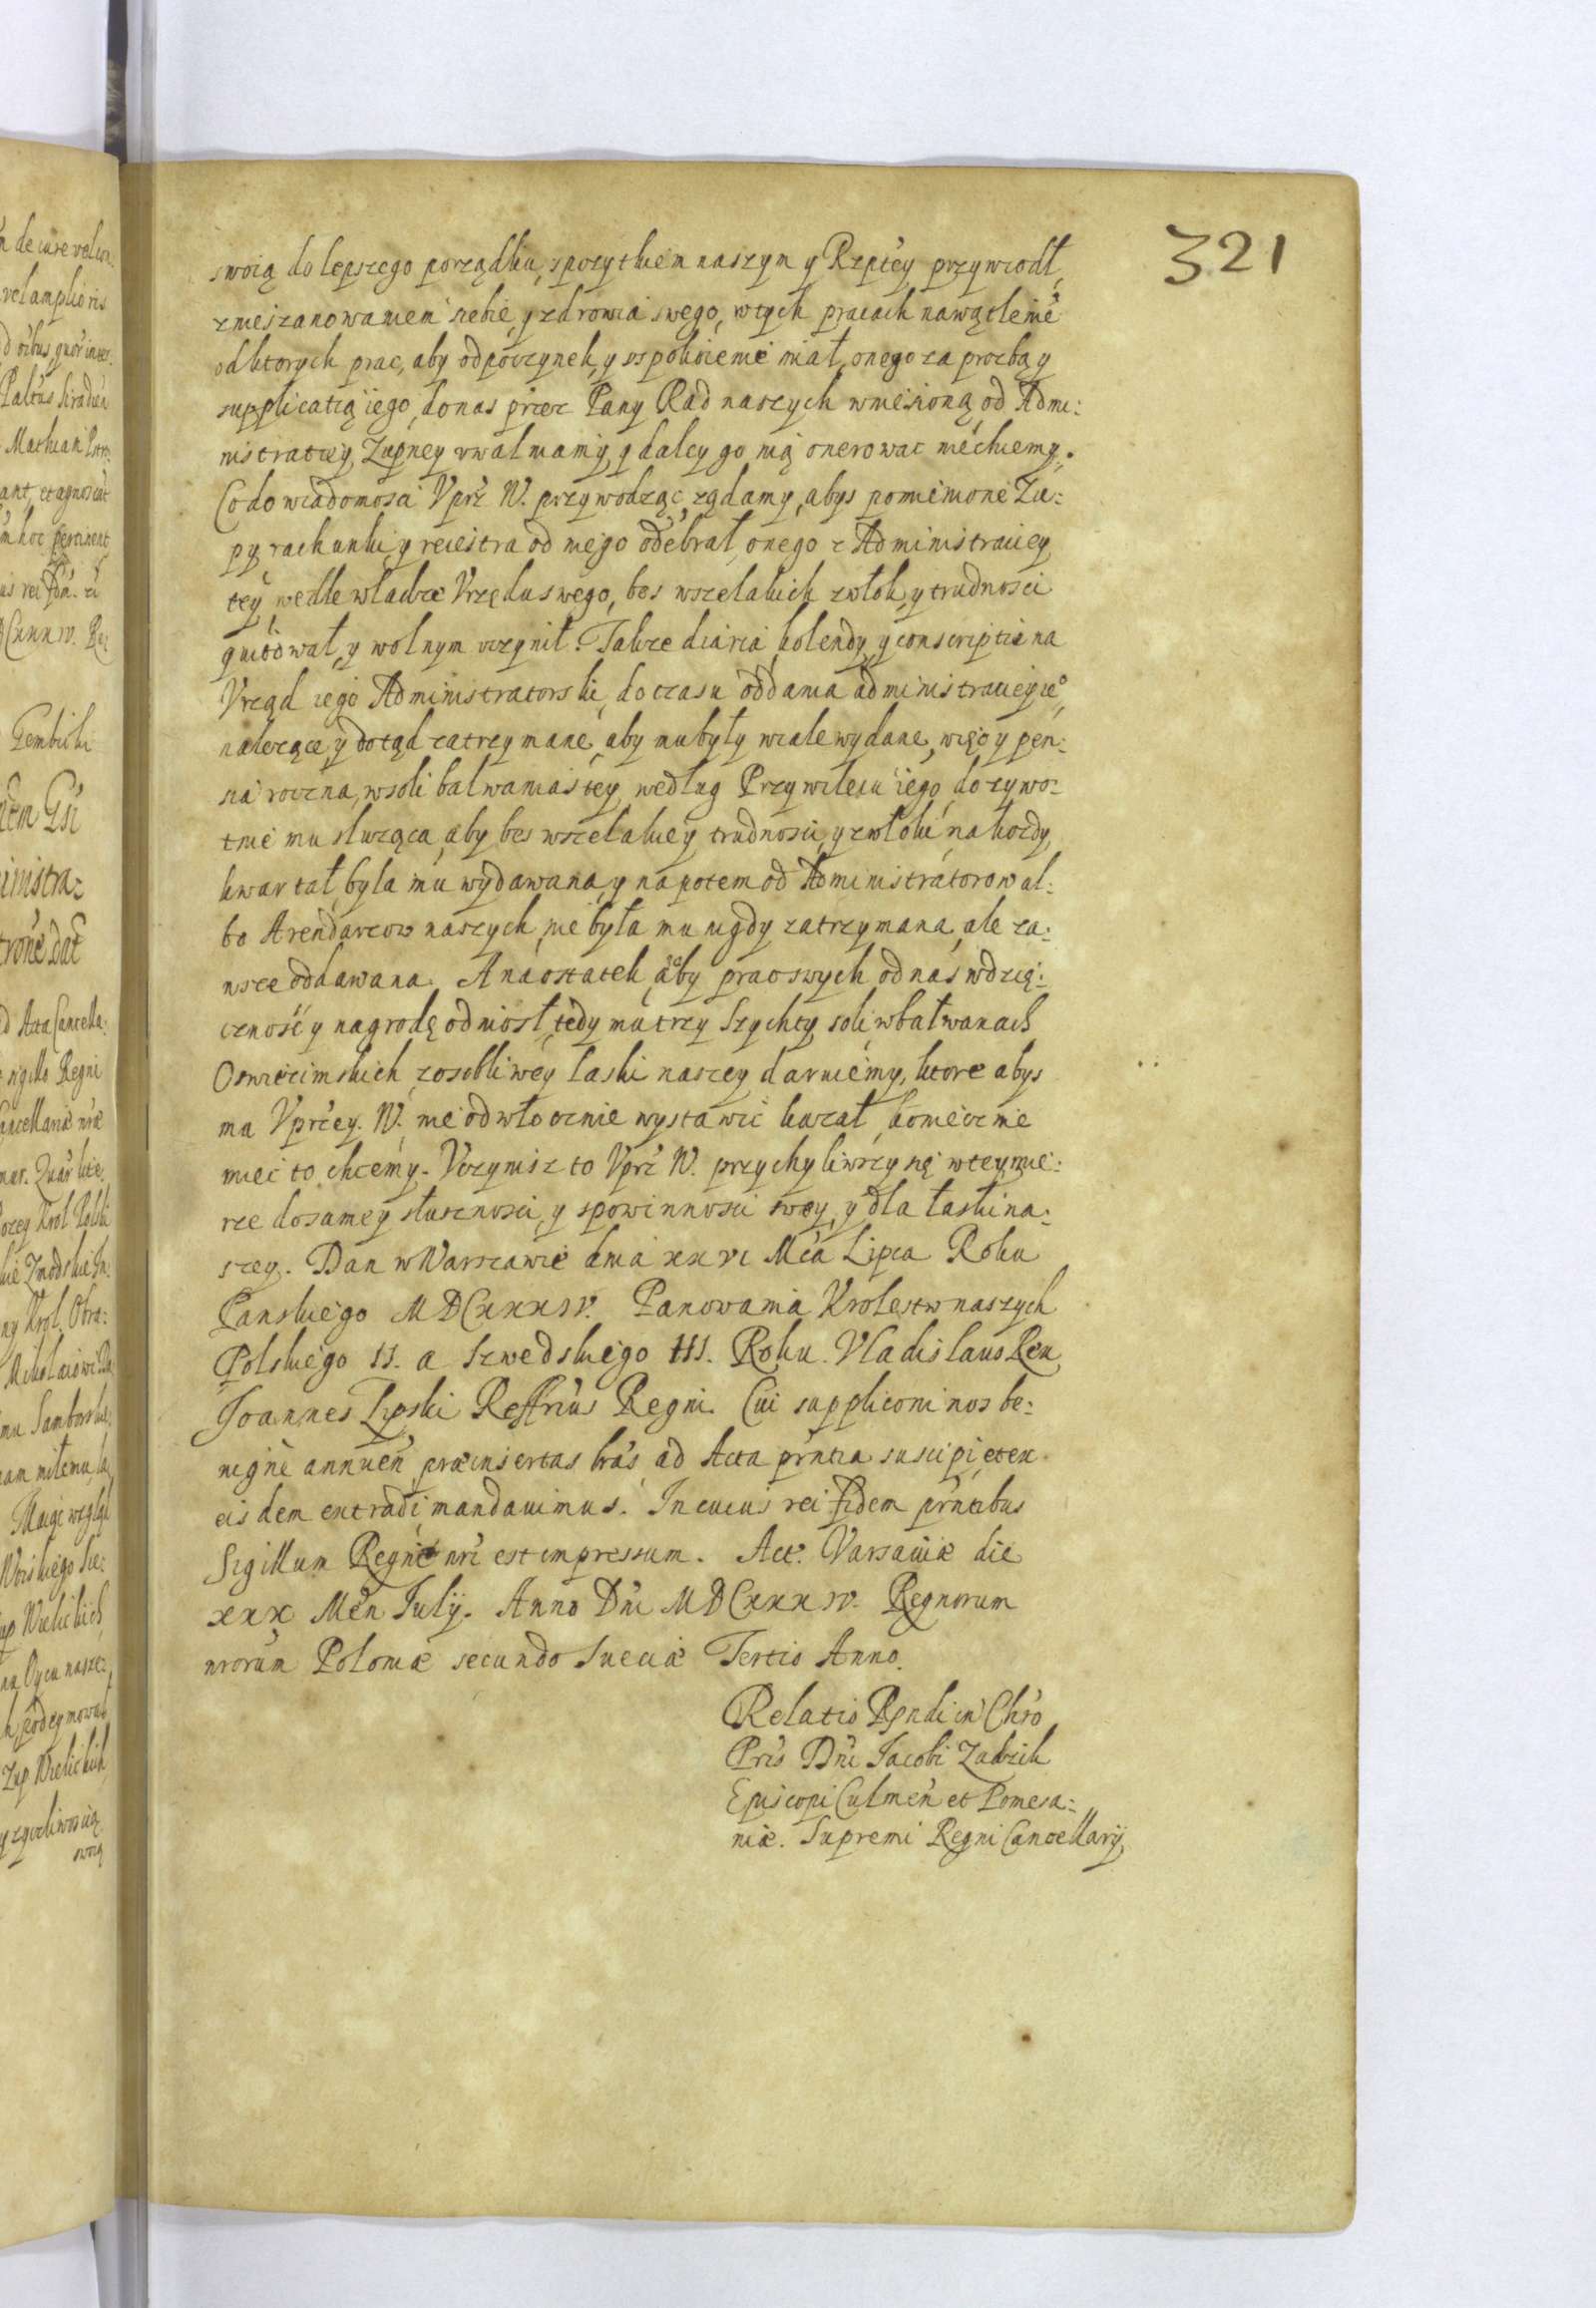 321
swoią do lepszego porządku, spozytkiem naszym y Rzptey przywiodł,
znieszanowaniem siebie, y zdrowia swego, wtych pracach nawątlenie
odktorych prac, aby odpoczynek, y vspokoienie miał, onego za prozbą y
supplicatią iego, donas przez Pany Rad naszych wniesioną, od Admi:
nistratiey Zupney vwalniamy, y daley go nią onerowac niechcemy.
Co do wiadomosci Vprz W. przywodząc, ządamy, abys pomienione Zu:
py, rachunki, y reiestra od niego odebrał, onego z Administraciey
tey wedle władze Vrzędu swego, bes wszelakich zwłok, y trudnosci
quitował, y wolnym vczynił. Takze diaria, kolendy, y conscriptie na
Vrząd iego Administratorski, do czasu oddania administraciey ie°
nalezące, y dotąd zatrzymane, aby mu były wcale wydane, więc y pen:
sia roczna, wsoli bałwaniastey, według Przywileiu iego, dozywo:
tnie mu słuząca, aby bes wszelakiey trudnosci, y zwłoki, na kozdy
kwartał, była mu wydawana, y napotem od Administratorow al:
bo Arendarzow naszych, nie była mu nigdy zatrzymana, ale za:
wsze oddawana. A naostatek, aby prac swych od nas wdzię:
cznosć y nagrodę odniosł, tedy mu trzy Szychty soli, wbałwanach
Oswiecimskich, zosobliwey łaski naszey daruiemy, ktore abys
mu Vprzey. W. nieodwłocznie wystawic kazał, koniecznie
miec to chcemy. Vczynisz to Vprz W. przychyliwszy się wtey mie:
rze do samey słusznosci, y spowinnosci swey, y dla łaski na:
szey. Dan w Warszawie dnia xxvi Mca Lipca Roku
Panskiego MDCxxxiv. Panowania Krolestw naszych
Polskiego II. a Szwedskiego III. Roku. Vladislaus Rex
Joannes Lipski Reffrius Regni. Cui supplicõni nos be:
nigne annuen præinsertas lras ad Acta pñtia suscipi, et ex
eisdem extradi mandauimus. In cuius rei fidem pñtibus
Sigillum Regni nri est impressum. Act. Varsauiæ die
xxx Men July. Anno Dni MDCxxxiv. Regnorum
nrorum Poloniæ secundo Sueciæ Tertio Anno.
Relatio Rndi in Chro
Pris Dni Jacobi Zadzik
Episcopi Culmen et Pomesa:
niæ. Supremi Regni Cancellarij